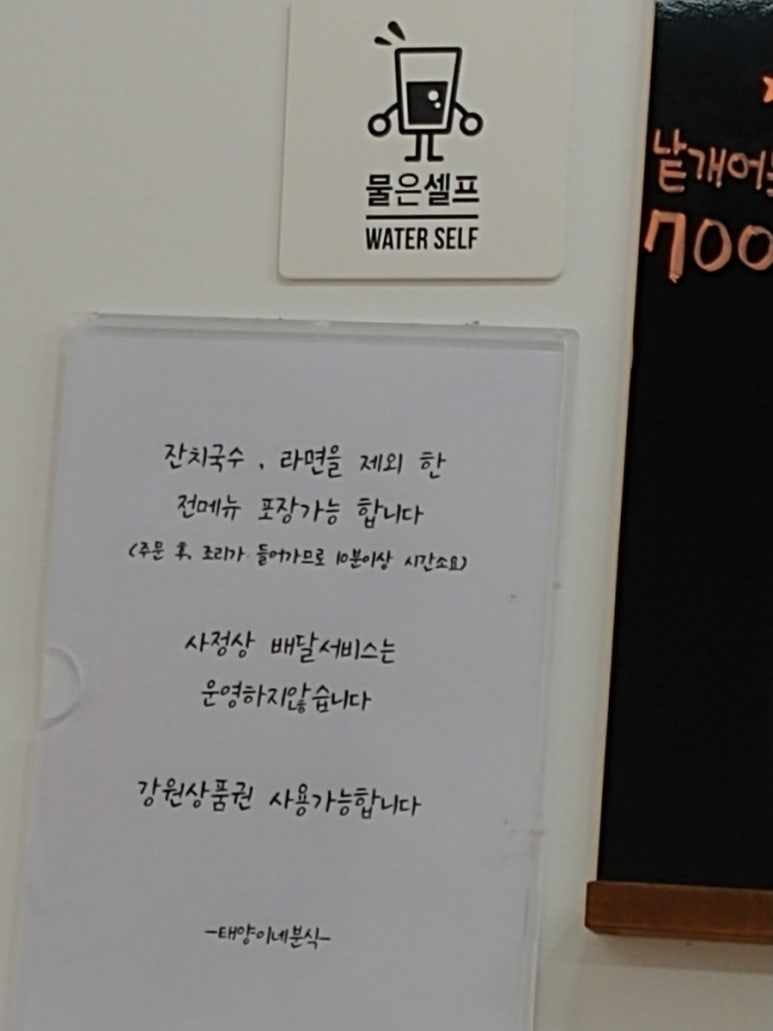 물은셀프
WATER SELF
잔치국수, 라면을 제외 한
전메뉴 포장가능 합니다
(주문 후, 조리가 들어가므로 10분이상 시간소요)
사정상 배달서비스는
운영하지않습니다
강원상품권 사용가능합니다
-태양이네분식-
낱개어
700